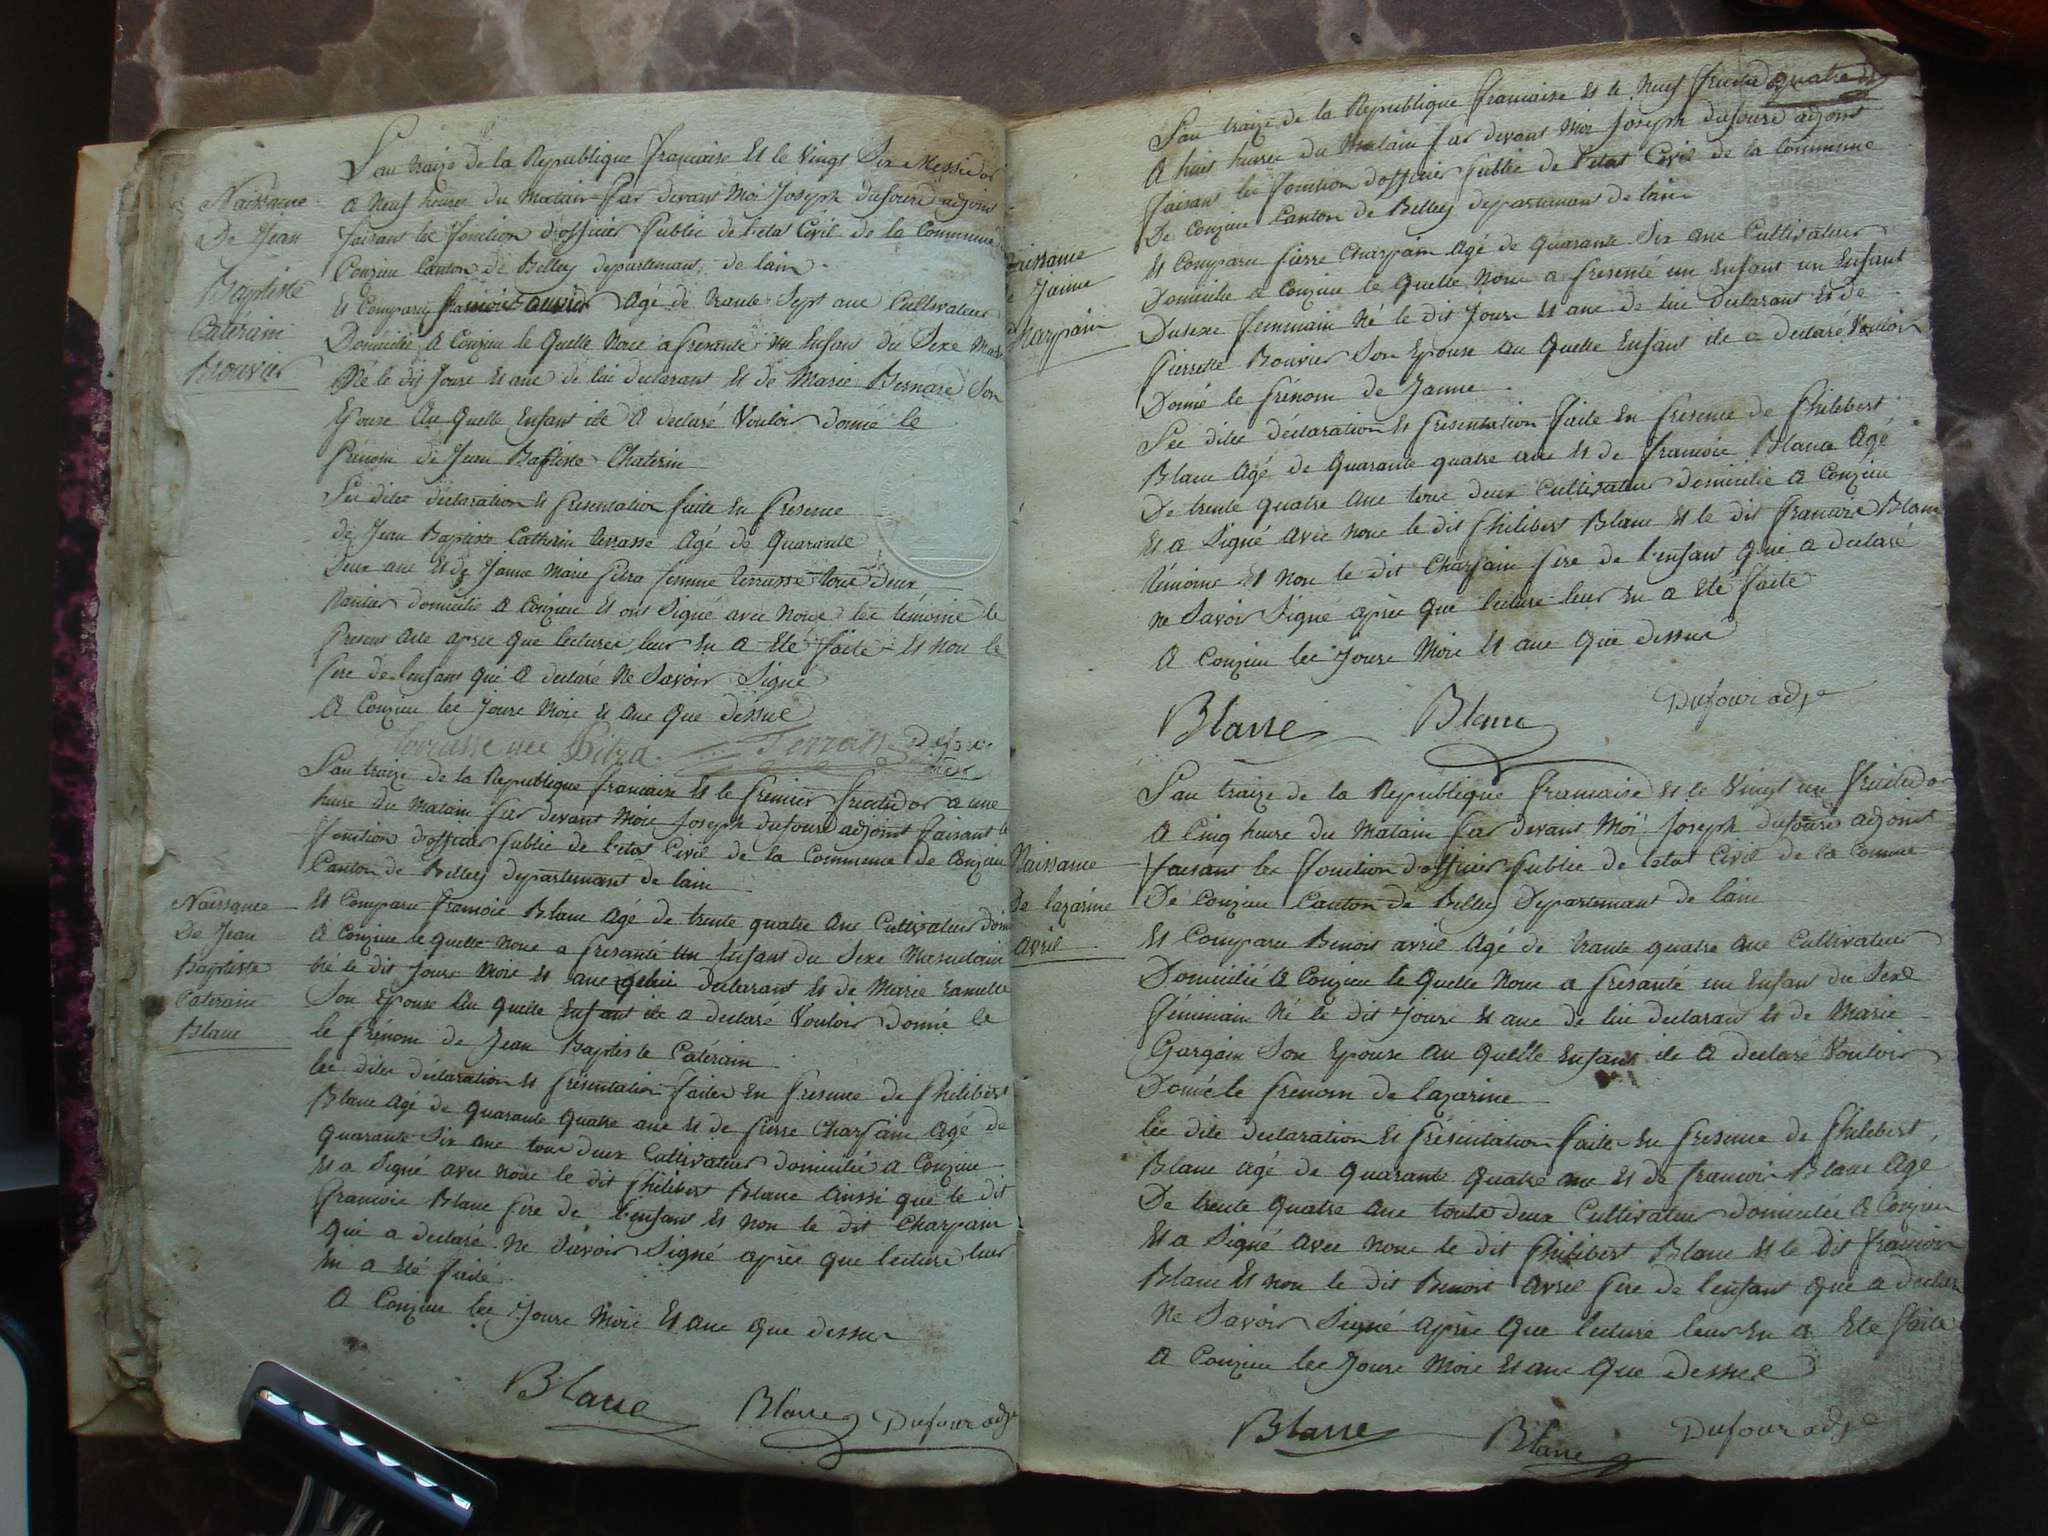 Naissance
De Jean
Baptiste
Catérain
Bouvier
L'an traize de la Republique francaise Et le Vingt Six Messidor
a Neuf heures du Matain par devant Moi Joseph dufoure adjoint
faisant lec fonction d'officier Public de l'etat Civil de la Commune
Conzieu Canton de Belley departemant de lain
Et Comparu francois Bouvier Agé de trante Sept anc Cultivateur
Domicilié a Conzieu le Quelle Nouc a presenté un Enfant du Sexe Mas
Né le dit Jourc Et anc de lui declarant Et de Marie Bernard Son
Epouse Au Quelle Enfant ile A declaré Vouloir donné le
Prénom de Jean Baptiste Chaterin
Lec ditec déclaration Et presentation faite En presence
de Jean Baptiste Catherin terrasse Agé de Quarante
Deux anc Et de Janne Marie pitra femme terrasse touc deux
Rantier domicilié a Conzieu Et ont Signé avec Nouc lec témoinc le
Present acte aprec que lecturec leur En a Eté faite Et non le
pere de l'enfant qui a declaré Ne Savoir Signé
A Conzieu lec Jourc Moic Et anc Que dessuc
terrasse nee Pitra Terrasse Dufour
adj
L'an traize de la Republique francaise Et le premier fructidor a une
heure du matain par devant Moic Joseph dufoure adjoint faisant le
fonction d'officier public de l'etat Civil de la Commune de Conzieu
Canton de Belley departemant de lain
Naissance
De Jean
Baptiste
Caterain
Blanc
Et Comparu francoic Blanc agé de trente quatre anc Cultivateur domi
A Conzieu le Quelle nouc a presanté un Enfant du Sexe Masculain
Né le dit Jourc Moic Et anc de lui declarant Et de Marie
Son Epouse Au Quelle Enfant ile a declaré Vouloir donné le
le prénom de Jean Baptiste Catérain
lec ditec déclaration Et présentation faitec En presence de philibert
Blanc agé de quarante quatre anc Et de pierre Charpain Agé de
quarante Six anc touc deux Cultivateur domiciliée a Conzieu
Et a Signé avec nouc le dit philibert Blanc ainssi que le dit
francoic Blanc pere de l'enfant Et non le dit Charpain
Qui a declaré Ne Savoir Signé aprèc que lecture leur
En a Eté faité
A Conzieu lec Jourc Moic Et anc Que dessuc
Blanc Blanc Dufour adj
L'an traize de la Republique francaise Et le Neuf fructidor
A huit heurec du Matain par devant Moi Joseph dufoure adjoint
faisant lec fonction d'officier public de l'etat Civil de la Commune
De Conzieu Canton de Belley departemant de lain
aissance
e Janne
harpain
Et Comparu pierre Charpain Agé de Quarante Six anc Cultivateur
Domicilié a Conzieu le Quelle Nouc a presenté un Enfant un Enfant
Dusexe femmain Né le dit Jourc Et anc de lui declarant Et de
pierrette Bouvier Son Epouse au Quelle Enfant ile a declaré Vouloir
Donné le prénom de Janne
Lec ditec déclaration Et presentation faite En presence de philibert
Blanc Agé de Quarante quatre anc Et de francoic Blanc Agé
De trente quatre anc touc deux Cultivateur domicilié a Conzieu
Et a Signé avec nouc le dit philibert Blanc Et le dit francoic Blanc
témoinc Et non le dit Charpain pere de l'enfant Qui a declaré
ne Savoir Signé aprèc que lecture leur En a Eté faite
A Conzieu lec Jourc Moic Et anc que dessuc
Blanc Blanc Dufour adj
L'an traize de la Republique francaise Et le Vingt un fructidor
A Cinq heure du Matain par devant Moi Joseph dufoure adjoint
faisant lec fonction d'officier public de letat Civil de la Comune
De Conzieu Canton de Belley Departemant de lain
Naissance
De lazarine
avril
Et Comparu Benoit avril Agé de trante quatre anc Cultivateur
Domicilié A Conzieu le Quelle Nouc a presanté un Enfant du Sexe
féminain Né le dit Jourc Et anc de lui declarant Et de Marie
Gargain Son Epouse Au Quelle Enfant ile A declaré Vouloir
Donné le prenom de lazarine
lec dite declaration Et présentation faite En presence de philibert
Blanc agé de quarante Quatre anc Et de francoic Blanc Agé
De trente quatre anc toutc deux Cultivateur domiciliée a Conzieu
Et a Signé avec nouc le dit philibert Blanc Et le dit francoic
Blanc Et non le dit Benoit avril pere de l'enfant Qui a declar
Ne Savoir Signé Aprèc Que lecture leur En a Eté faite
A Conzieu lec Jourc Moic Et anc Que dessuc
Blanc Blanc Dufour adj